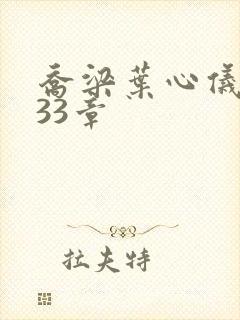 乔梁葉心儀
33章
拉夫特